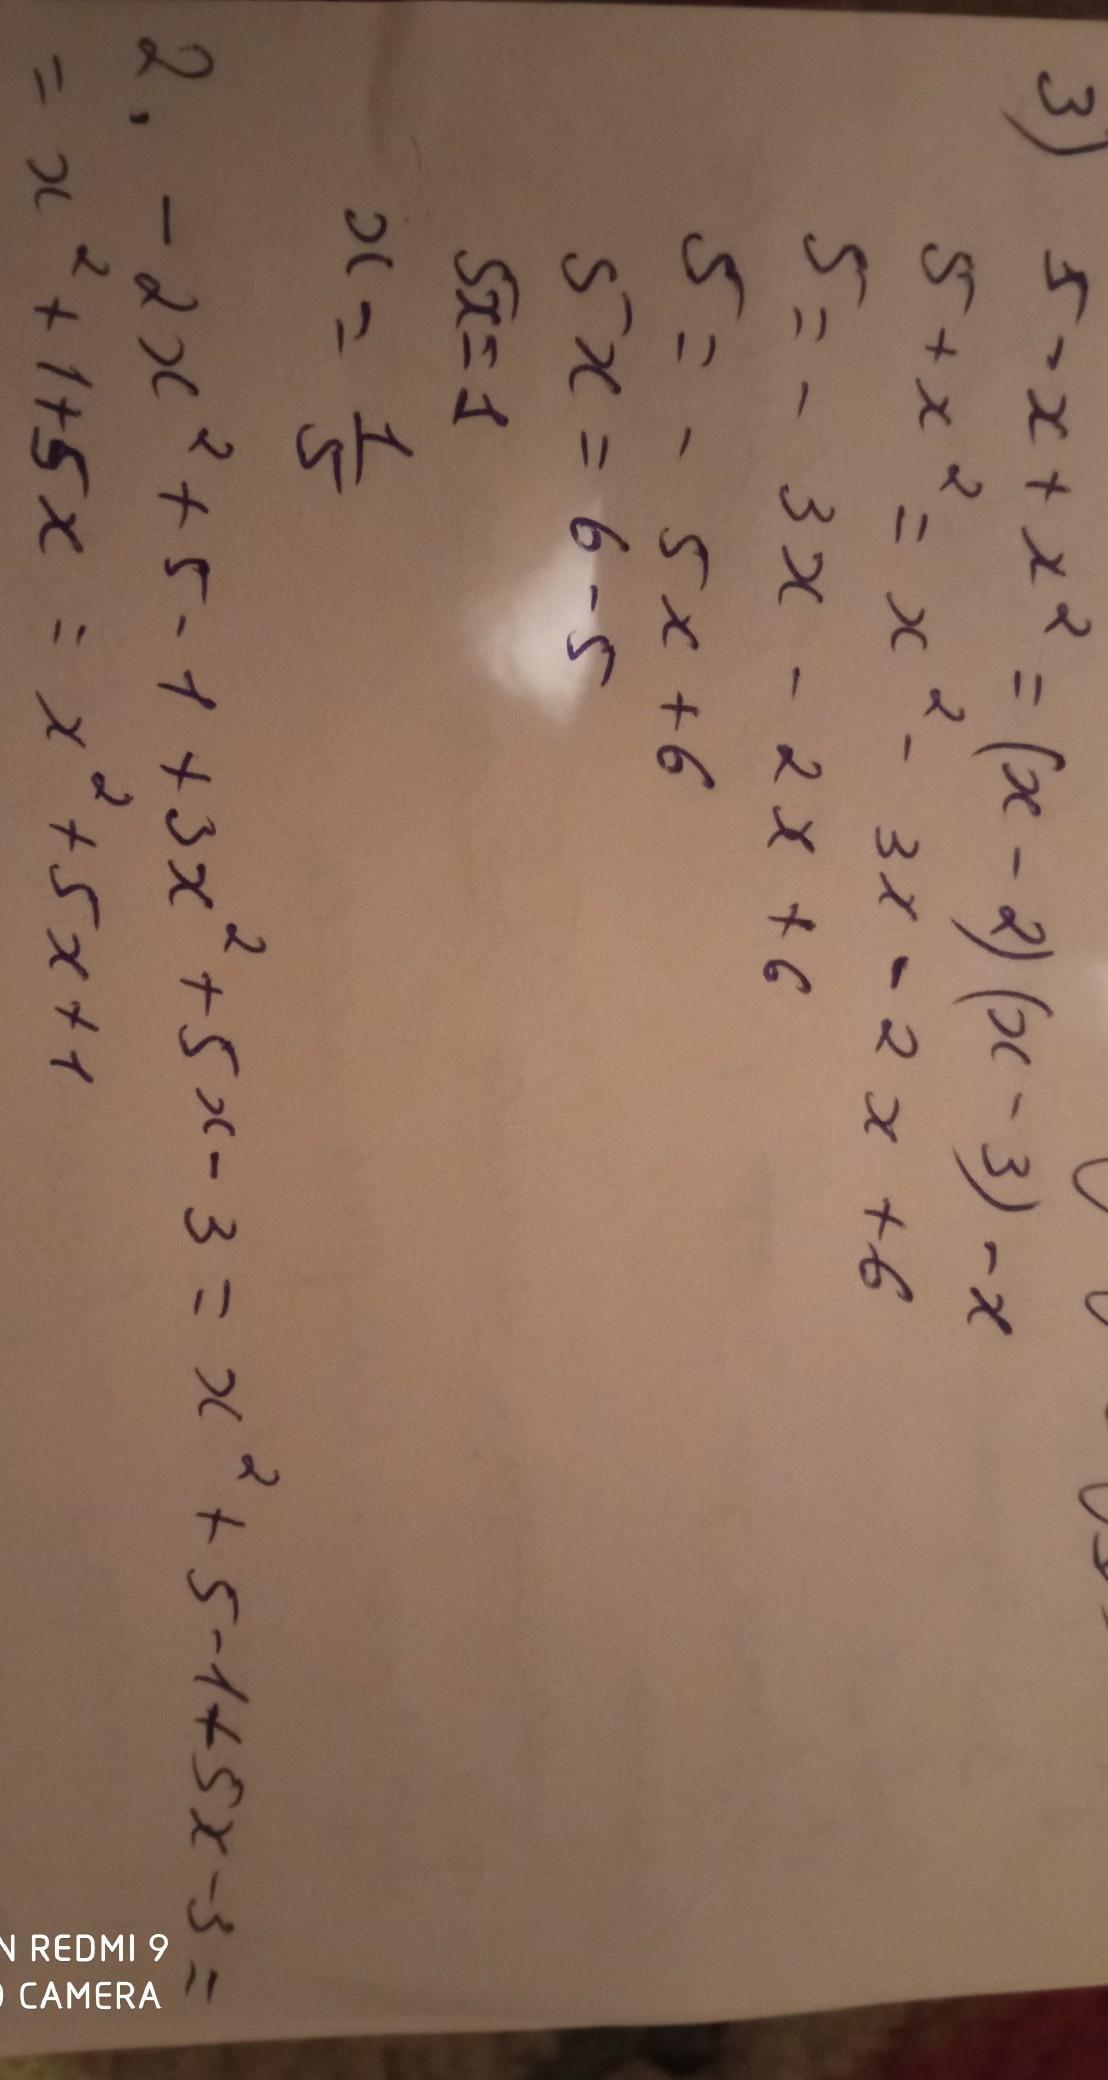 3) 5-x+x²=(x-2)(x-3)-x
5+x²=x²-3x-2x+6
5=-3x-2x+6
5=-5x+6
5x=6-5
5x=1
x=1/5
2. -2x²+5-1+3x²+5x-3=x²+5-1+5x-3=
=x²+1+5x=x²+5x+1
REDMI 9
CAMERA